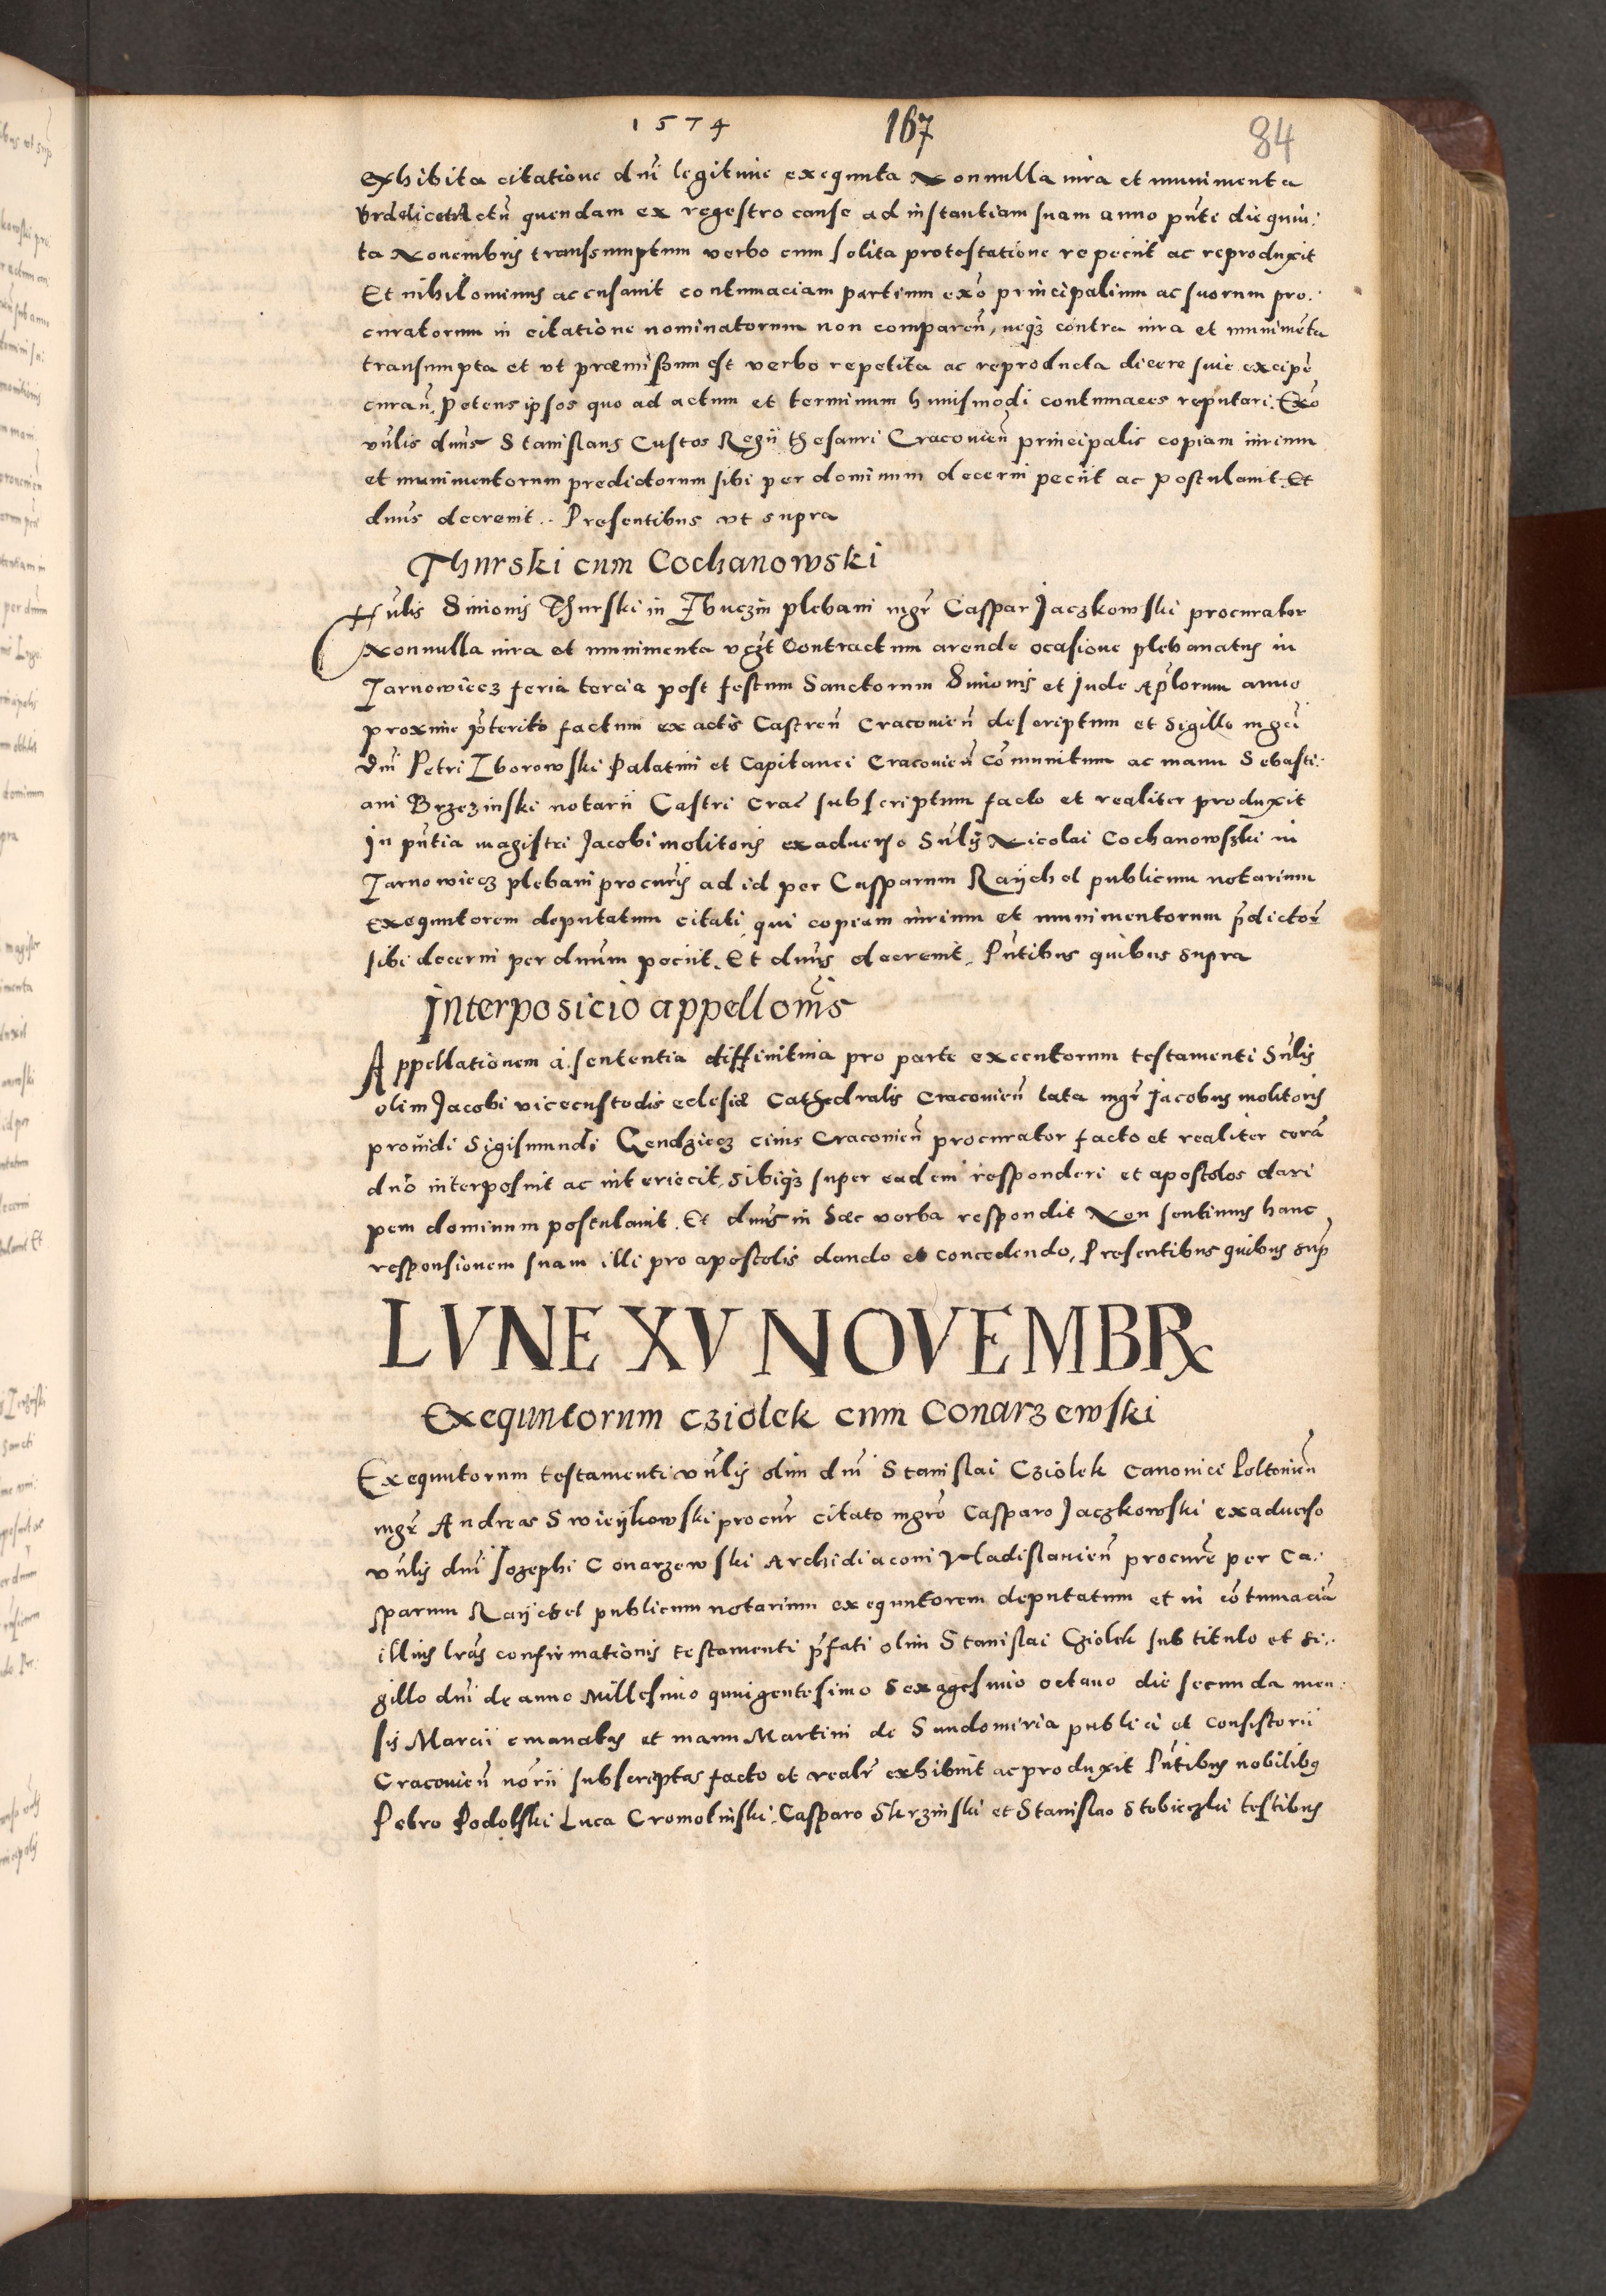 1574 167 84
exhibita citatione dnĩ legitime exequuta Nonnulla iura et munimenta
videlicet Actũ quendam ex regestro cause ad instantiam suam anno pñte die quin:
ta Novembris transsumptum verbo cum solita protestatione repeciit ac reproduxit
Et nihilominus accusauit contumaciam partium exõ principalium ac suorum pro:
curatorum in citatione nominatorum non comparen̄, neqȝ contra iura et munimẽta
transumpta et ut præmissum est verbo repetita ac reproducta dicere siue excipẽ
curan̄. Petens ipsos quo ad actum et terminum huiusmodi contumaces reputari. Exõ
vñlis dñus Stanislaus Custos Regii thesauri Cracouien̄ principalis copiam iurium
et munimentorum predictorum sibi per dominum decerni peciit ac postulauit. Et
dñus decreuit. Presentibus ut supra
Thurski cum Cochanowski
Hñlis Simonis Thurski in plebani mgr̃ Caspar Jaczkowski procurator
Nonnulla iura et munimenta vczt Contractum arende ocasione plebanatus in
Tarnowiecz feria tercia post festum Sanctorum Simonis et Jude Aplõrum anno
proxime p̃terito factum ex actis Castren̄ Cracouien̄ descriptum et sigillo mgci
Dnĩ Petri Zborowski Palatini et Capitanei Cracouien̄ cõmunitum ac manu Sebasti:
ani Brzezinski notarii Castri Crac̃ subscriptum facto et realiter produxit
In pñtia magistri Jacobi molitoris exaduerso Sñlis Nicolai Cochanowski in
Tarnowiecz plebani procuris ad id per Casparum Raychel publicum notarium
exequutorem deputatum citati, qui copiam iurium et munimentorum p̃dictor̃
sibi decerni per dnũm peciit. Et dñus decreuit. Pñtibus quibus supra
Interposicio appellonĩs
Appellationem a sententia diffinitiua pro parte executorum testamenti Sñlis
olim Jacobi vicecustodis eclesiæ Cathedralis Cracouien̄ lata mgr̃ Jacobus molitoris
prouidi Sigismundi Gendziecz ciuis Cracouien̄ procurator facto et realiter corã
dnõ interposuit ac interiecit, sibiqȝ super eadem responderi et apostolos dari
pem dominum postulauit. Et dñus in hæc verba respondit Non sentimus hanc
responsionem suam illi pro apostolis dando et concedendo, Presentibus quibus sup̃
LVNE XV NOVEMBR
Exequutorum Cziolek cum Conarzewski
Exequutorum testamenti vñlis olim dnĩ Stanislai Cziolek Canonici Poltouien̄
mgr̃ Andreas Swieykowski procur̃ citato mgrõ Casparo Jaczkowski exaduerso
vñlis dnĩ Jozephi Conarzewski Archidiaconi Vladislauien̄ procurẽ per Ca:
sparum Raychel publicum notarium exequutorem deputatum et in cõtumaciã
illius lrãs confirmationis testamenti p̃fati olim Stanislai Cziolek sub titulo et si:
gillo dnĩ de anno Millesimo quingentesimo Sexagesimo octauo die secunda men:
sis Marcii emanatas et manu Martini de Sandomiria publici et Consistorii
Cracouien̄ norĩi subscriptas facto et realr̃ exhibuit ac produxit Pñtibus nobilibus
Petro Podolski Luca Cromolinski, Casparo Skrzinski et Stanislao Stobieczki testibus